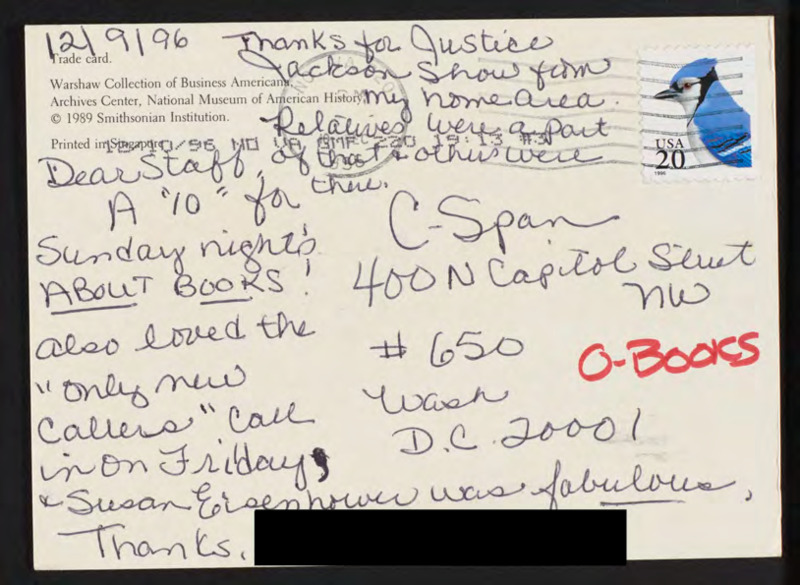 12/9/96
Thanks for Justice
Jackson Show from
my home area.
Relatives were a part
of that & others were
there.
Trade card.
Warshaw Collection of Business Americana,
Archives Center, National Museum of American History
© 1989 Smithsonian Institution.
Printed in Singapore
10/96 MD VA GMF 220 19:13 #3
USA
20
1996
Dear Staff,
A "10" for
Sunday night's
ABOUT BOOKS!
also loved the
"only new
callers" call
in on Friday,
& Susan Eisenhower was fabulous,
Thanks,
C-Span
400 N Capitol Street
NW
# 650
Wash
D.C. 20001
O-BOOKS